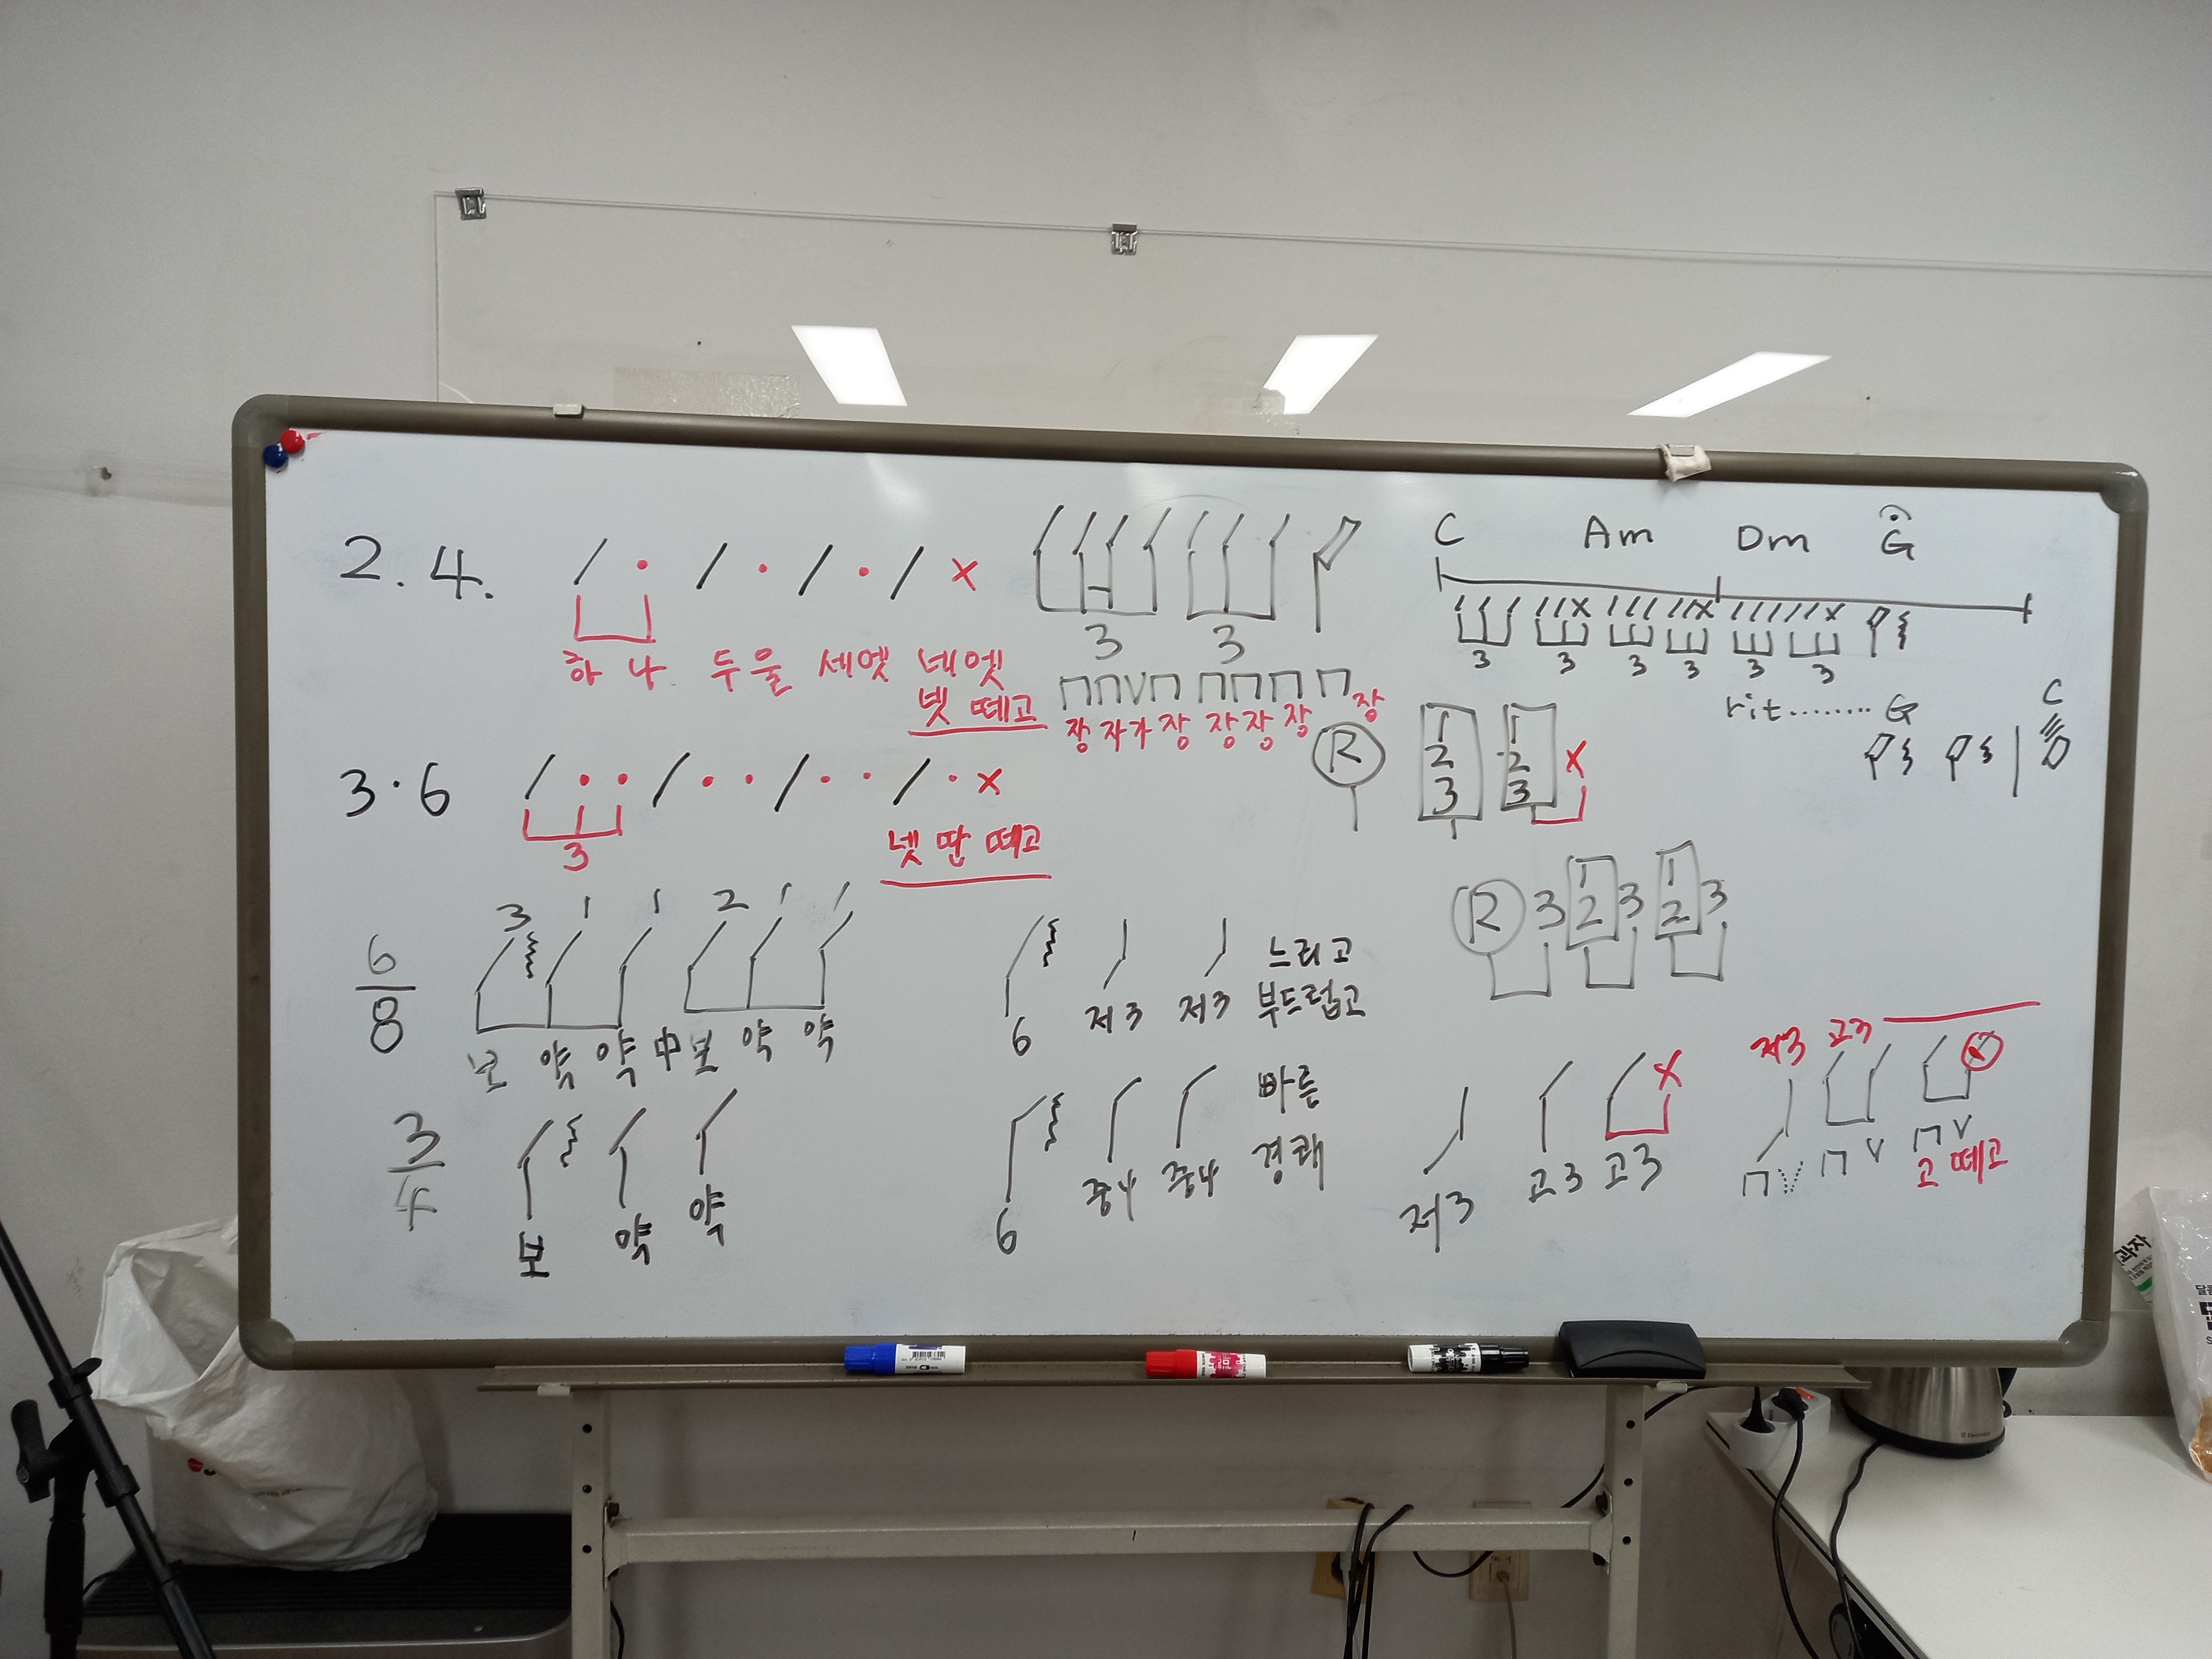 2.4.
x
하 나 두 울 세 엣 네 엣
넷 떼고
3 3
장 자가 장 장 장 장 장
C Am Dm G
x x x
3 3 3 3 3 3
rit........ G C
3·6
x
3
넷 딴 떼고
R 1 2 3 1 2 3 x
R 3 1 2 3 1 2 3
6/8
3 1 1 2 1 1
약 약 中 약 약
6 저3 저3
느리고
부드럽고
3/4
약 약
6 중4 중4
빠른
경쾌
저3 고3 고3 x
저3 고3
고 떼고
과자